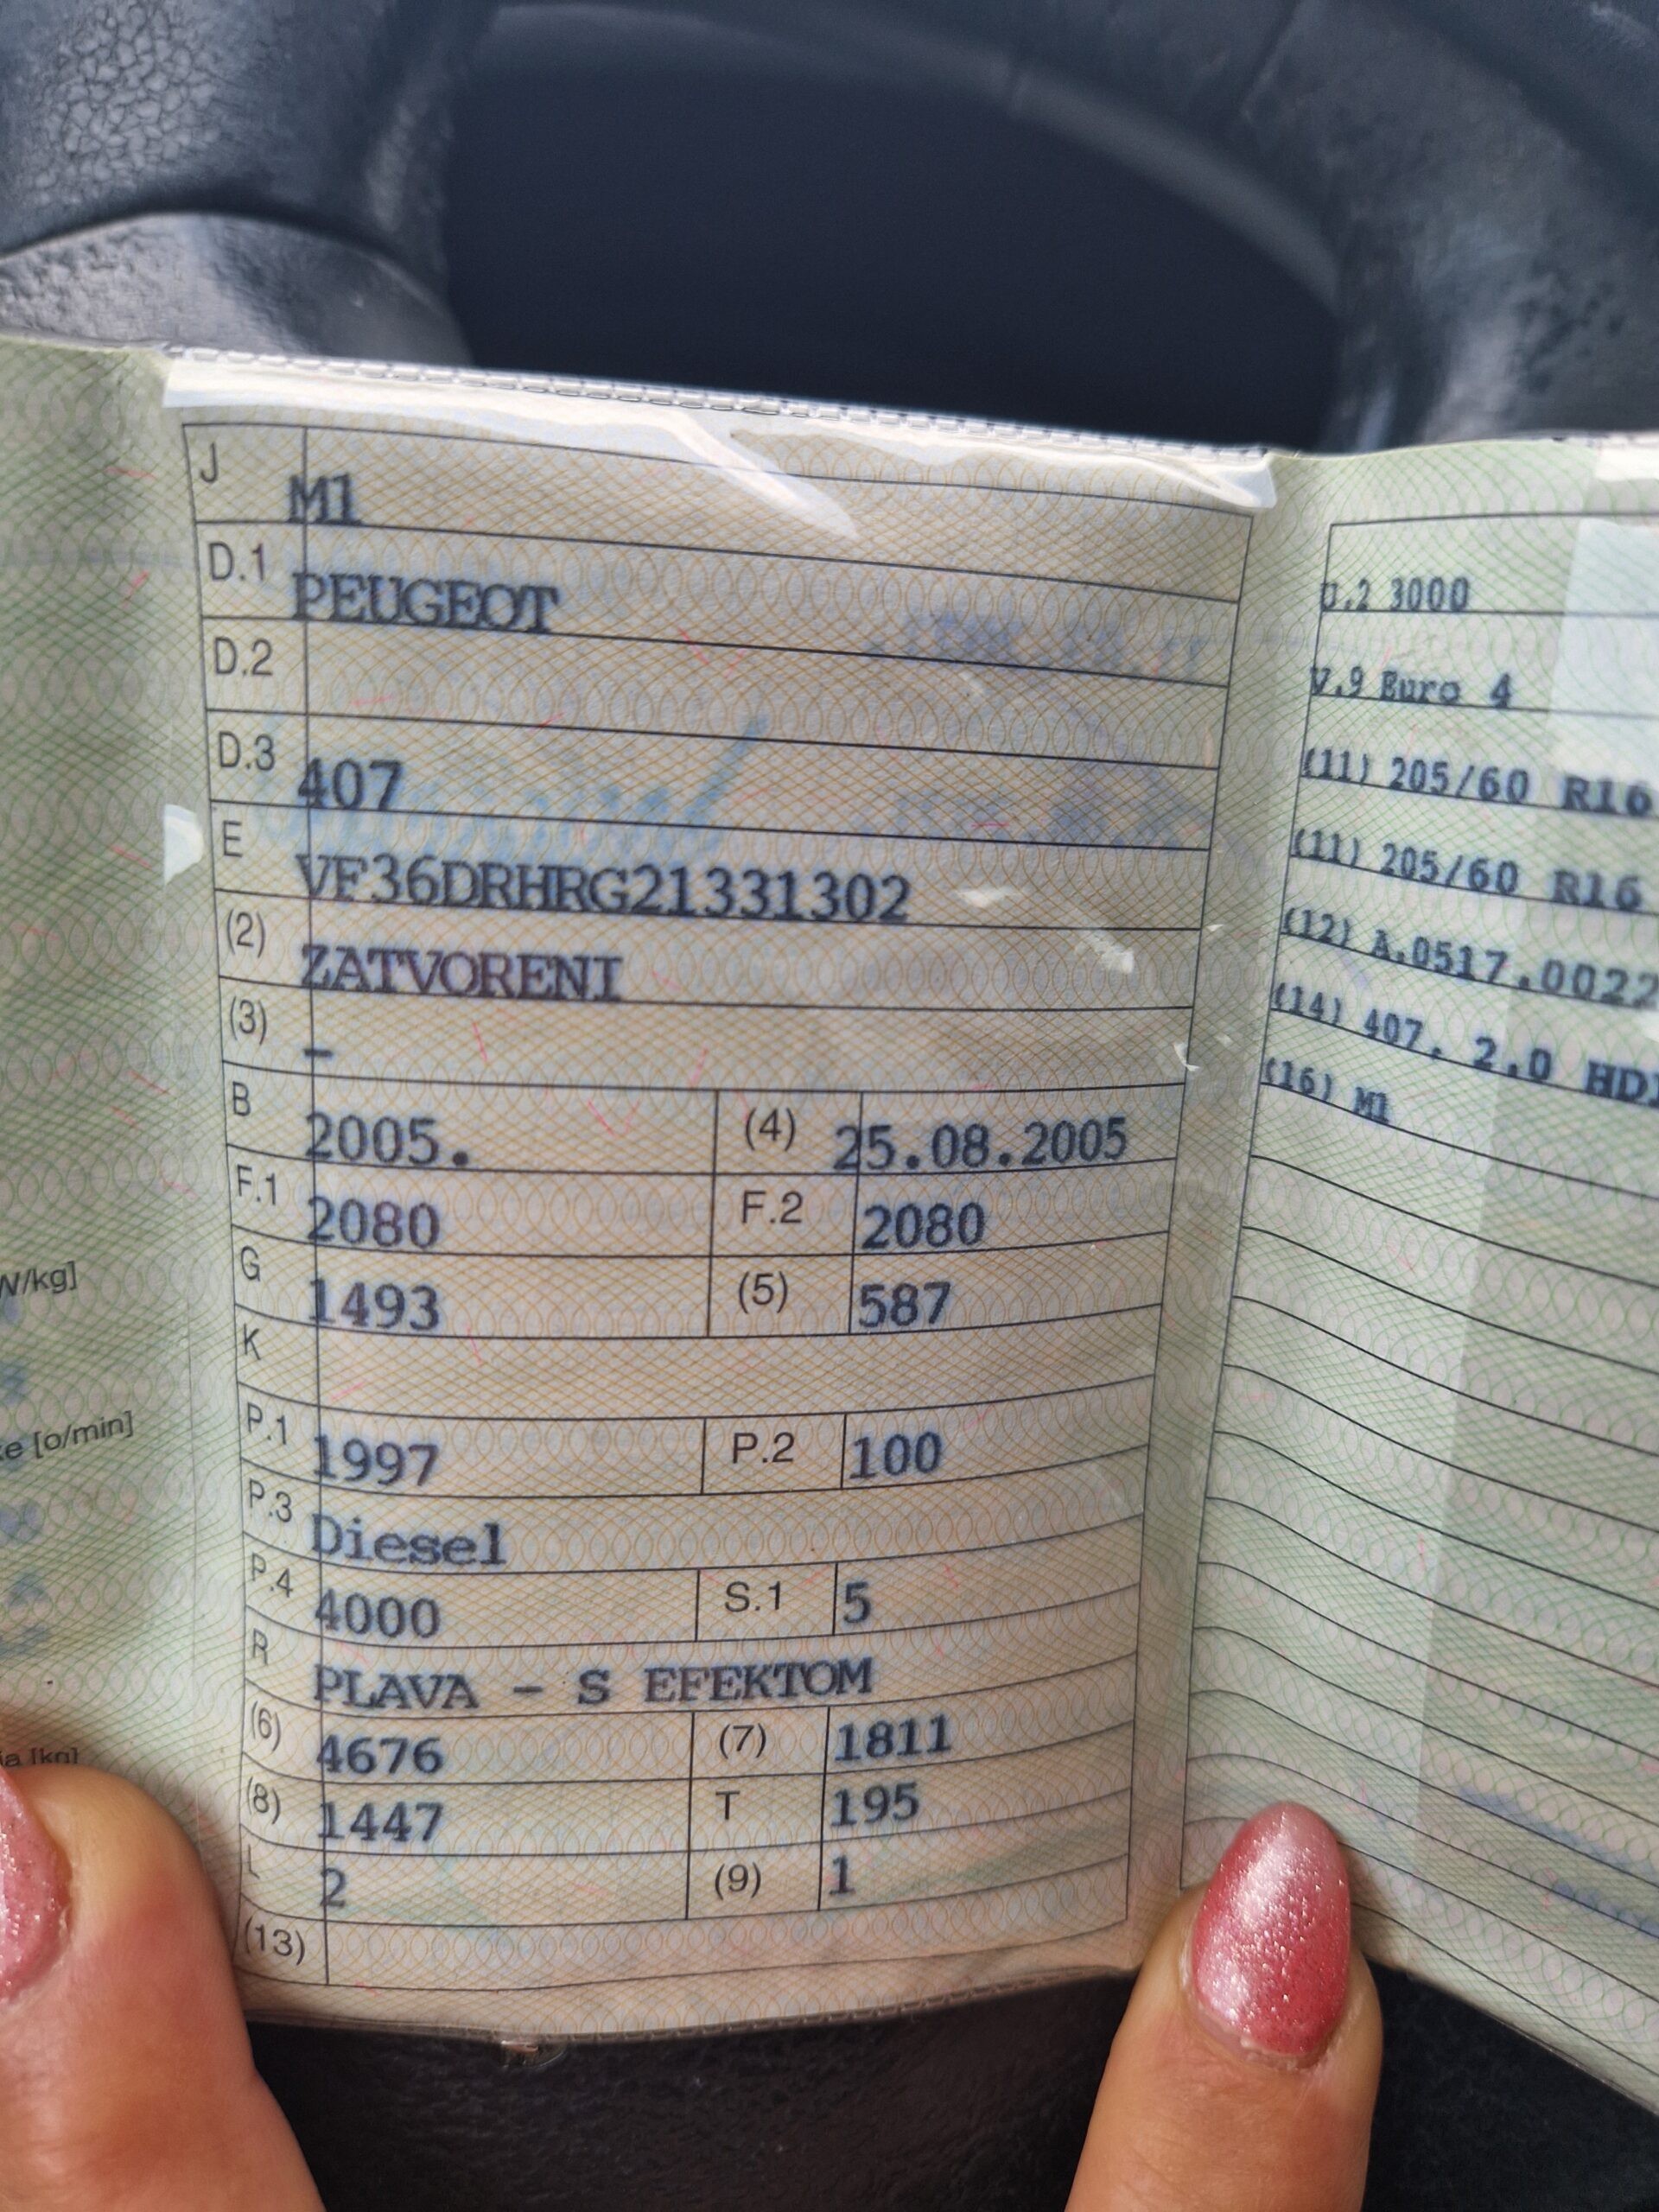 J M1
D.1 PEUGEOT
D.2
D.3 407
E VF36DRHRG21331302
(2) ZATVORENI
(3) -
B 2005. (4) 25.08.2005
F.1 2080 F.2 2080
G 1493 (5) 587
K
P.1 1997 P.2 100
P.3 Diesel
P.4 4000 S.1 5
R PLAVA - S EFEKTOM
(6) 4676 (7) 1811
(8) 1447 T 195
L 2 (9) 1
(13)
U.2 3000
V.9 Euro 4
(11) 205/60 R16
(11) 205/60 R16
(12) A.0517.0022
(14) 407. 2.0 HDI
(16) M1
W/kg]
[o/min]
[kg]